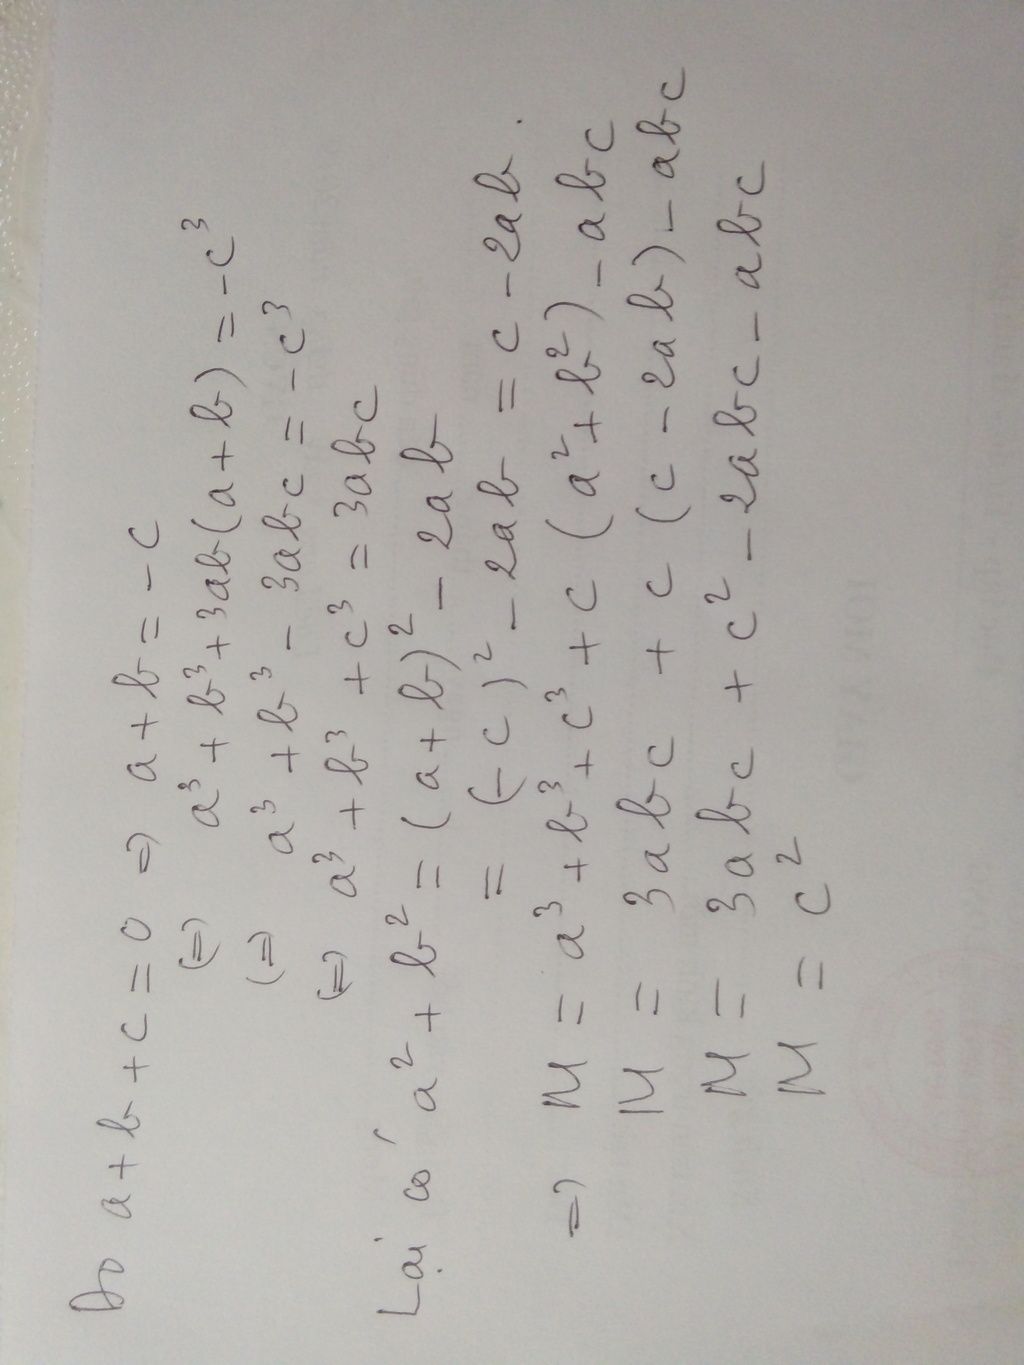 Do a + b + c = 0 => a + b = - c
(=) a³ + b³ + 3ab(a + b) = - c³
(=) a³ + b³ - 3abc = - c³
(=) a³ + b³ + c³ = 3abc
Lại có a² + b² = (a + b)² - 2ab
= (- c)² - 2ab = c - 2ab.
=> M = a³ + b³ + c³ + c (a² + b²) - abc
M = 3abc + c (c - 2ab) - abc
M = 3abc + c² - 2abc - abc
M = c²